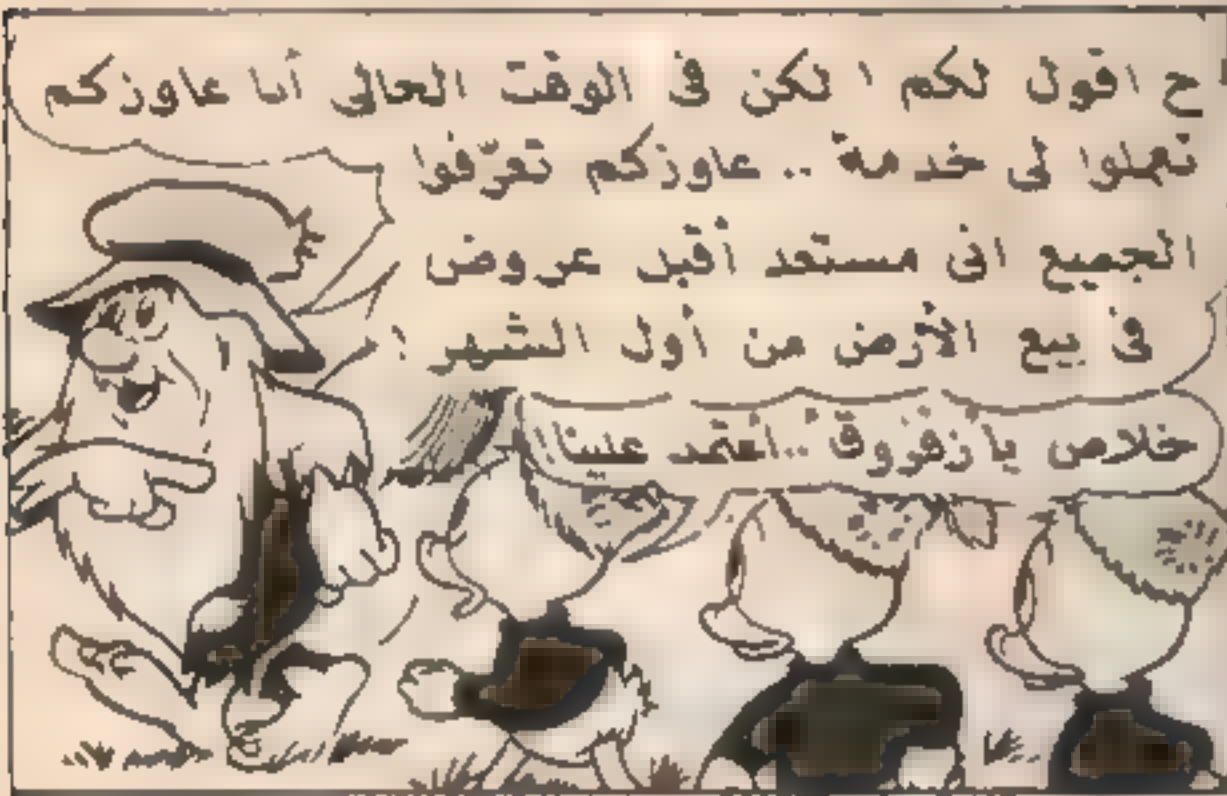 ح اقول لكم ! لكن فى الوقت الحالى أنا عاوزكم
تعملوا لى خدمة .. عاوزكم تعرّفوا
الجميع انى مستعد أقبل عروض
فى بيع الأرض من أول الشهر !
خلاص يا زقزوق .. اعتمد علينا !